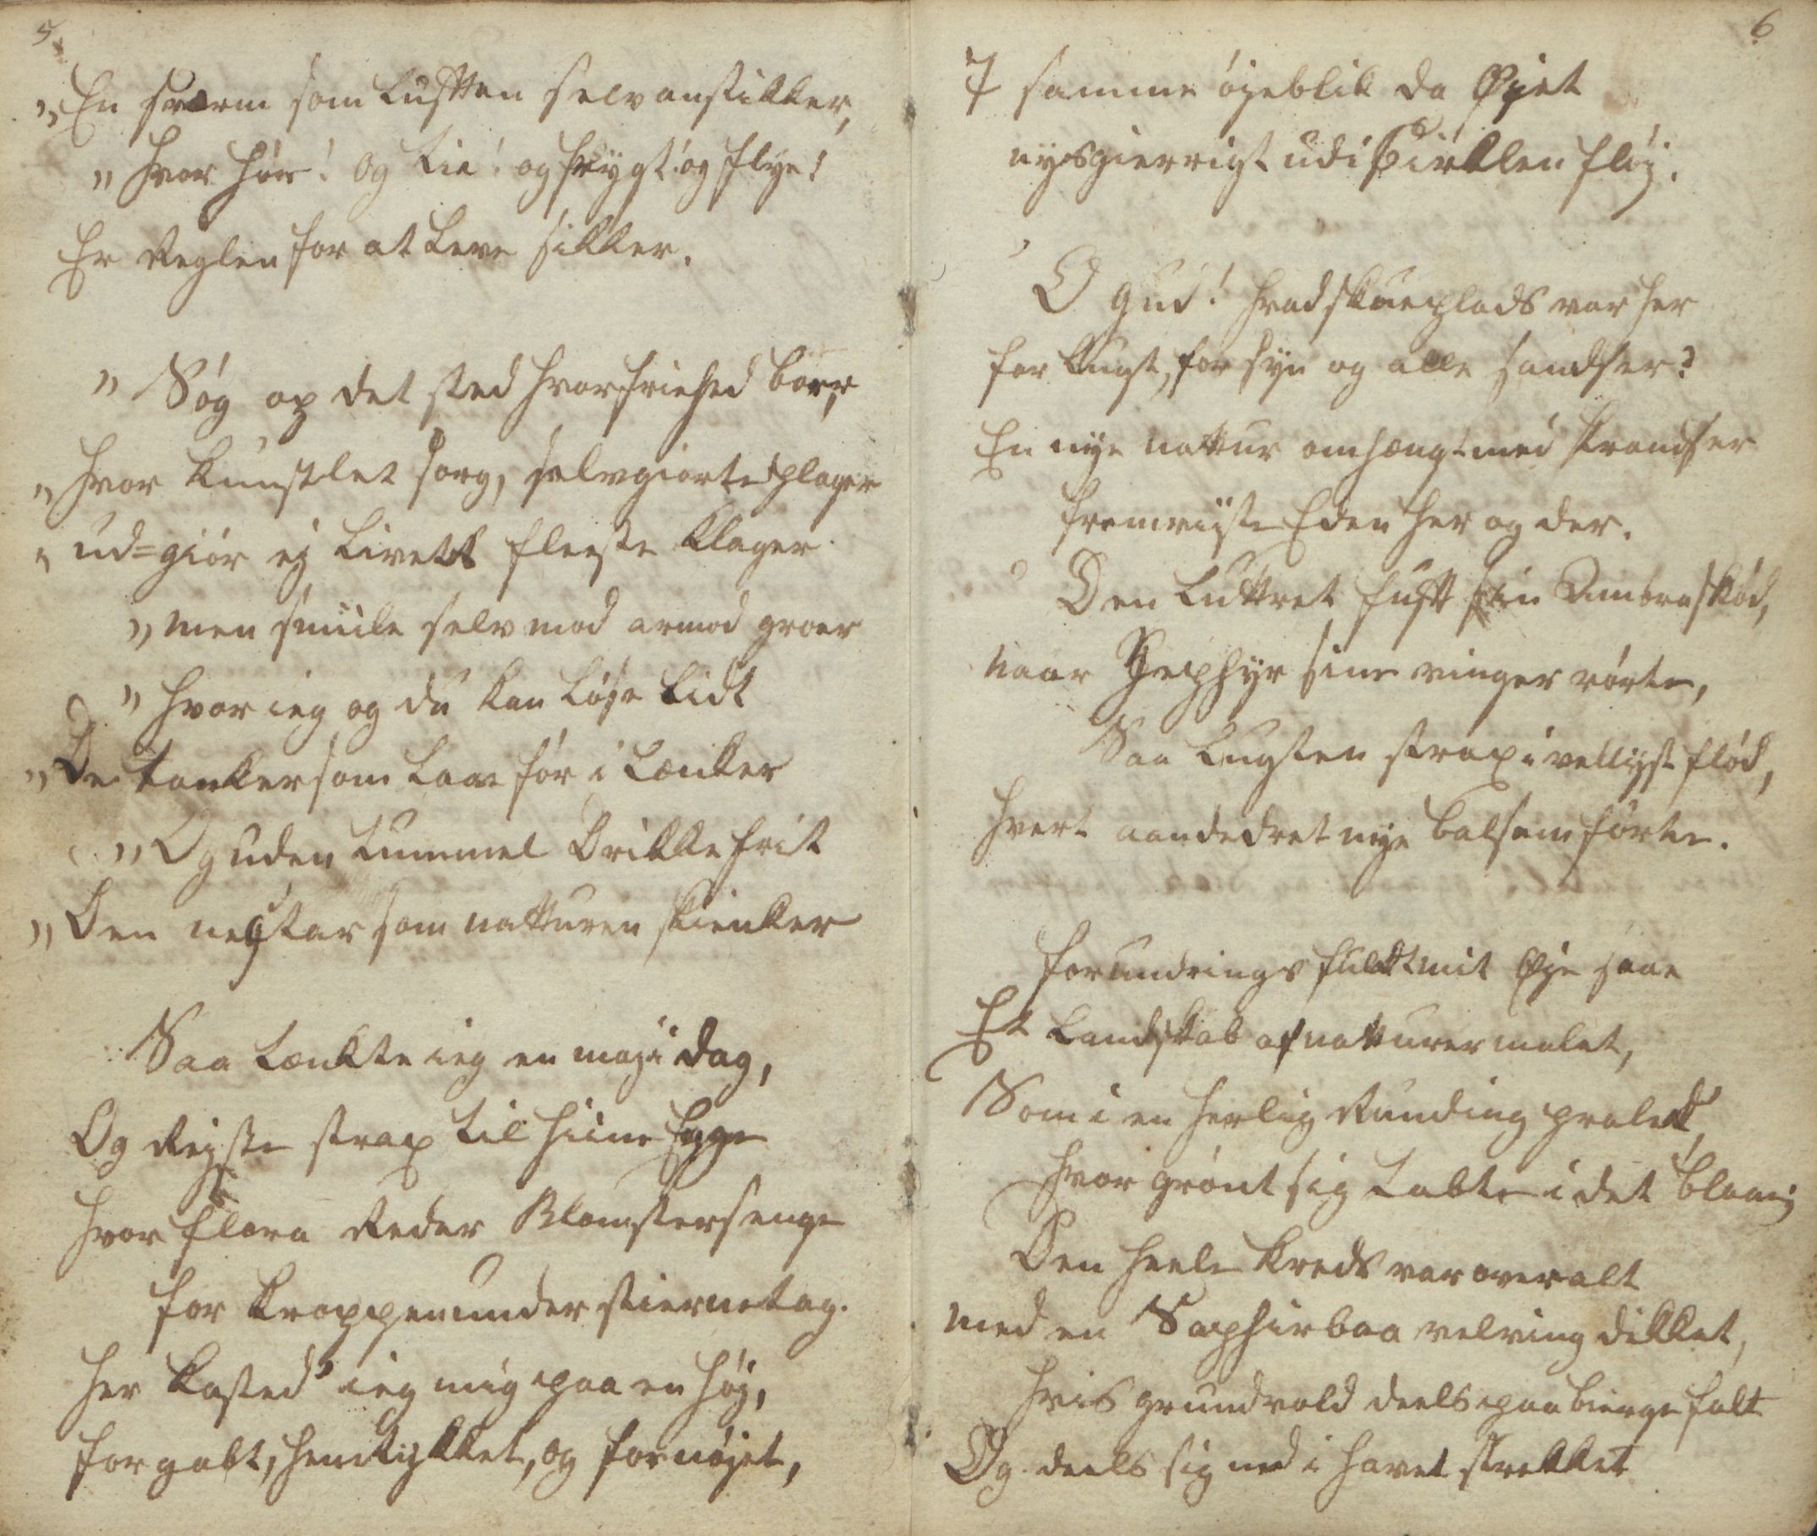 5
„En sværm som Lusten selv anstikker,
„hvor hør! og tie! og frygt! og flye!
Er Reglen for at Leve sikker.
„Søg op det sted hvor friehed boer,
„hvor kunstlet sorg, selvgiorte plager
„ud=giør ej Livets fleeste klager
„men smiile selv mod armod groer
„hvor ieg og du kan løse lidt
„De tanker som laae før i Lænker
„Og uden tummel drikke frit
„Den nectar som natturen skienker
Saa tænkte ieg en maji dag,
Og Reyste strax til hiine Enge
hvor flora Reder Blomstersenge
for kroppen under stiernetag.
her kasted' ieg mig paa en høj,
forgabt, henrykket, og fornøjet,
6
I samme øjeblik da Øjet
nysgierrigt ud i Cirklen fløj.
O Gud! hvad skueplads var her
for Lugt, for syn og alle sandser?
En nye nattur omhængt med krandser
fremviiste Eden her og der.
Den luttret luft sin Ambra skød,
naar Zephyr sine vinger rørte,
Saa Lugten strax i vellyst flød,
hvert aandedret nye balsam førte.
forundringsfuldt mit Øje saae
Et Landskab af natturen malet,
Som i en herlig Runding pralet,
hvor grønt sig tabte i det blaae;
Den heele kreds var overalt
med en Saphirblaa velving dekket,
hvis grundvold deels paa bierge faldt
Og deels sig ned i havet strekket